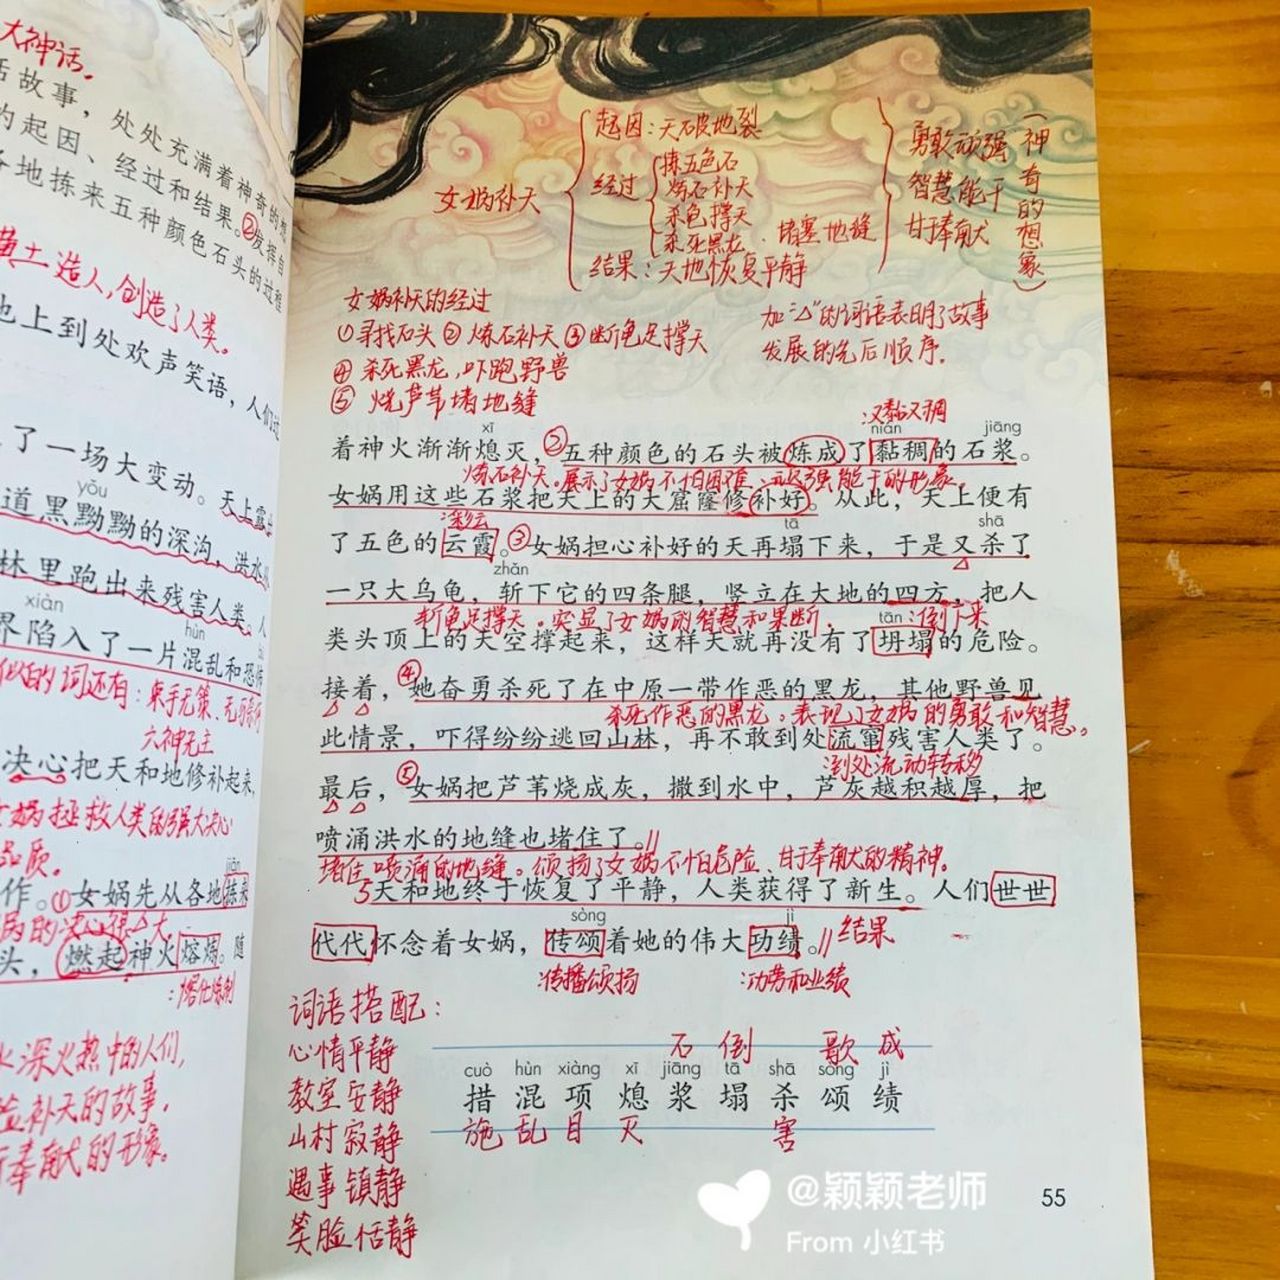 大神话。
话故事，处处充满着神奇的想
的起因、经过和结果。②发挥自
各地拣来五种颜色石头的过程
黄土造人，创造了人类。
地上到处欢声笑语，人们过
了一场大变动。天上露出
yǒu
道黑黝黝的深沟，洪水
林里跑出来残害人类。人
xiàn hùn
界陷入了一片混乱和恐怖
似的词还有：束手无策、无可奈何
六神无主
决心把天和地修补起来，
女娲拯救人类的强大决心
品质。
jiǎn
作。①女娲先从各地拣来
的决心强大。
头，燃起神火熔炼。随
：熔化炼制
水深火热中的人们，
险补天的故事，
奉献的形象。
女娲补天
起因：天破地裂
经过
拣五色石
炼石补天
杀龟撑天
杀死黑龙、堵塞地缝
结果：天地恢复平静
勇敢顽强
智慧能干
甘于奉献
（神奇的想象）
女娲补天的经过
①寻找石头 ②炼石补天 ③断龟足撑天
④杀死黑龙，吓跑野兽
⑤烧芦苇堵地缝
加“△”的词语表明了故事
发展的先后顺序。
：又黏又稠
xī nián jiāng
着神火渐渐熄灭，②五种颜色的石头被炼成了黏稠的石浆。
炼石补天。展示了女娲不怕困难、坚强能干的形象。
女娲用这些石浆把天上的大窟窿修补好。从此，天上便有
：彩云
tā shā
了五色的云霞。③女娲担心补好的天再塌下来，于是又杀了
zhǎn
一只大乌龟，斩下它的四条腿，竖立在大地的四方，把人
斩龟足撑天。突显了女娲的智慧和果断。
tān ：倒下来
类头顶上的天空撑起来，这样天就再没有了坍塌的危险。
接着，④她奋勇杀死了在中原一带作恶的黑龙，其他野兽见
杀死作恶的黑龙。表现了女娲的勇敢和智慧。
此情景，吓得纷纷逃回山林，再不敢到处流窜残害人类了。
：到处流动转移
最后，⑤女娲把芦苇烧成灰，撒到水中，芦灰越积越厚，把
喷涌洪水的地缝也堵住了。//
堵住喷涌的地缝。颂扬了女娲不怕危险、甘于奉献的精神。
5天和地终于恢复了平静，人类获得了新生。人们世世
sòng jì
代代怀念着女娲，传颂着她的伟大功绩。// 结果
：传播颂扬 ：功劳和业绩
词语搭配：
心情平静
教室安静
山村寂静
遇事镇静
笑脸恬静
石 倒 歌 成
cuò hùn xiàng xī jiāng tā shā sòng jì
措 混 项 熄 浆 塌 杀 颂 绩
施 乱 目 灭 害
@颖颖老师
From 小红书
55